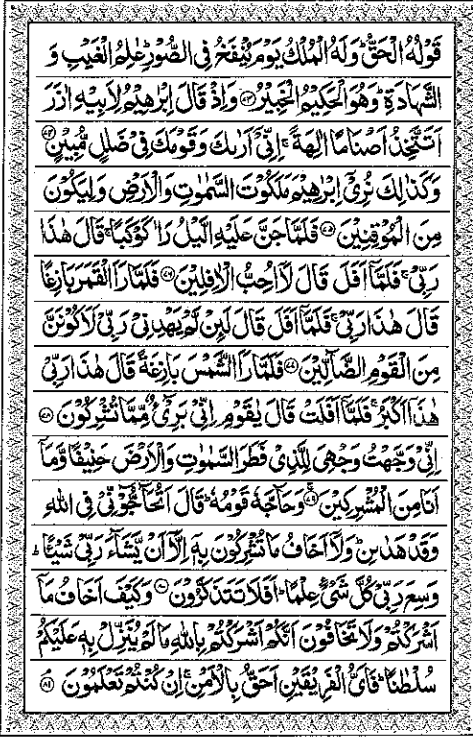 قَوْلُهُ الْحَقُّ ؕ وَلَهُ الْمُلْكُ يَوْمَ يُنْفَخُ فِي الصُّوْرِ ؕ عٰلِمُ الْغَيْبِ وَ
الشَّهَادَةِ ؕ وَهُوَ الْحَكِيْمُ الْخَبِيْرُ ﴿۷۳﴾ وَاِذْ قَالَ اِبْرٰهِيْمُ لِاَبِيْهِ اٰزَرَ
اَتَتَّخِذُ اَصْنَامًا اٰلِهَةً ۚ اِنِّيْۤ اَرٰىكَ وَقَوْمَكَ فِيْ ضَلٰلٍ مُّبِيْنٍ ﴿۷۴﴾
وَكَذٰلِكَ نُرِيْۤ اِبْرٰهِيْمَ مَلَكُوْتَ السَّمٰوٰتِ وَالْاَرْضِ وَلِيَكُوْنَ
مِنَ الْمُوْقِنِيْنَ ﴿۷۵﴾ فَلَمَّا جَنَّ عَلَيْهِ الَّيْلُ رَاٰ كَوْكَبًا ۚ قَالَ هٰذَا
رَبِّيْ ۚ فَلَمَّاۤ اَفَلَ قَالَ لَاۤ اُحِبُّ الْاٰفِلِيْنَ ﴿۷۶﴾ فَلَمَّا رَاَ الْقَمَرَ بَازِغًا
قَالَ هٰذَا رَبِّيْ ۚ فَلَمَّاۤ اَفَلَ قَالَ لَئِنْ لَّمْ يَهْدِنِيْ رَبِّيْ لَاَكُوْنَنَّ
مِنَ الْقَوْمِ الضَّآلِّيْنَ ﴿۷۷﴾ فَلَمَّا رَاَ الشَّمْسَ بَازِغَةً قَالَ هٰذَا رَبِّيْ
هٰذَاۤ اَكْبَرُ ۚ فَلَمَّاۤ اَفَلَتْ قَالَ يٰقَوْمِ اِنِّيْ بَرِيْٓءٌ مِّمَّا تُشْرِكُوْنَ ﴿۷۸﴾
اِنِّيْ وَجَّهْتُ وَجْهِيَ لِلَّذِيْ فَطَرَ السَّمٰوٰتِ وَالْاَرْضَ حَنِيْفًا وَّمَاۤ
اَنَا مِنَ الْمُشْرِكِيْنَ ﴿۷۹﴾ وَحَآجَّهٗ قَوْمُهٗ ؕ قَالَ اَتُحَآجُّوْٓنِّيْ فِي اللّٰهِ
وَقَدْ هَدٰىنِ ؕ وَلَاۤ اَخَافُ مَا تُشْرِكُوْنَ بِهٖۤ اِلَّاۤ اَنْ يَّشَآءَ رَبِّيْ شَيْـًٔا ؕ
وَسِعَ رَبِّيْ كُلَّ شَيْءٍ عِلْمًا ؕ اَفَلَا تَتَذَكَّرُوْنَ ﴿۸۰﴾ وَكَيْفَ اَخَافُ مَاۤ
اَشْرَكْتُمْ وَلَا تَخَافُوْنَ اَنَّكُمْ اَشْرَكْتُمْ بِاللّٰهِ مَا لَمْ يُنَزِّلْ بِهٖ عَلَيْكُمْ
سُلْطٰنًا ؕ فَاَيُّ الْفَرِيْقَيْنِ اَحَقُّ بِالْاَمْنِ ۚ اِنْ كُنْتُمْ تَعْلَمُوْنَ ﴿۸۱﴾